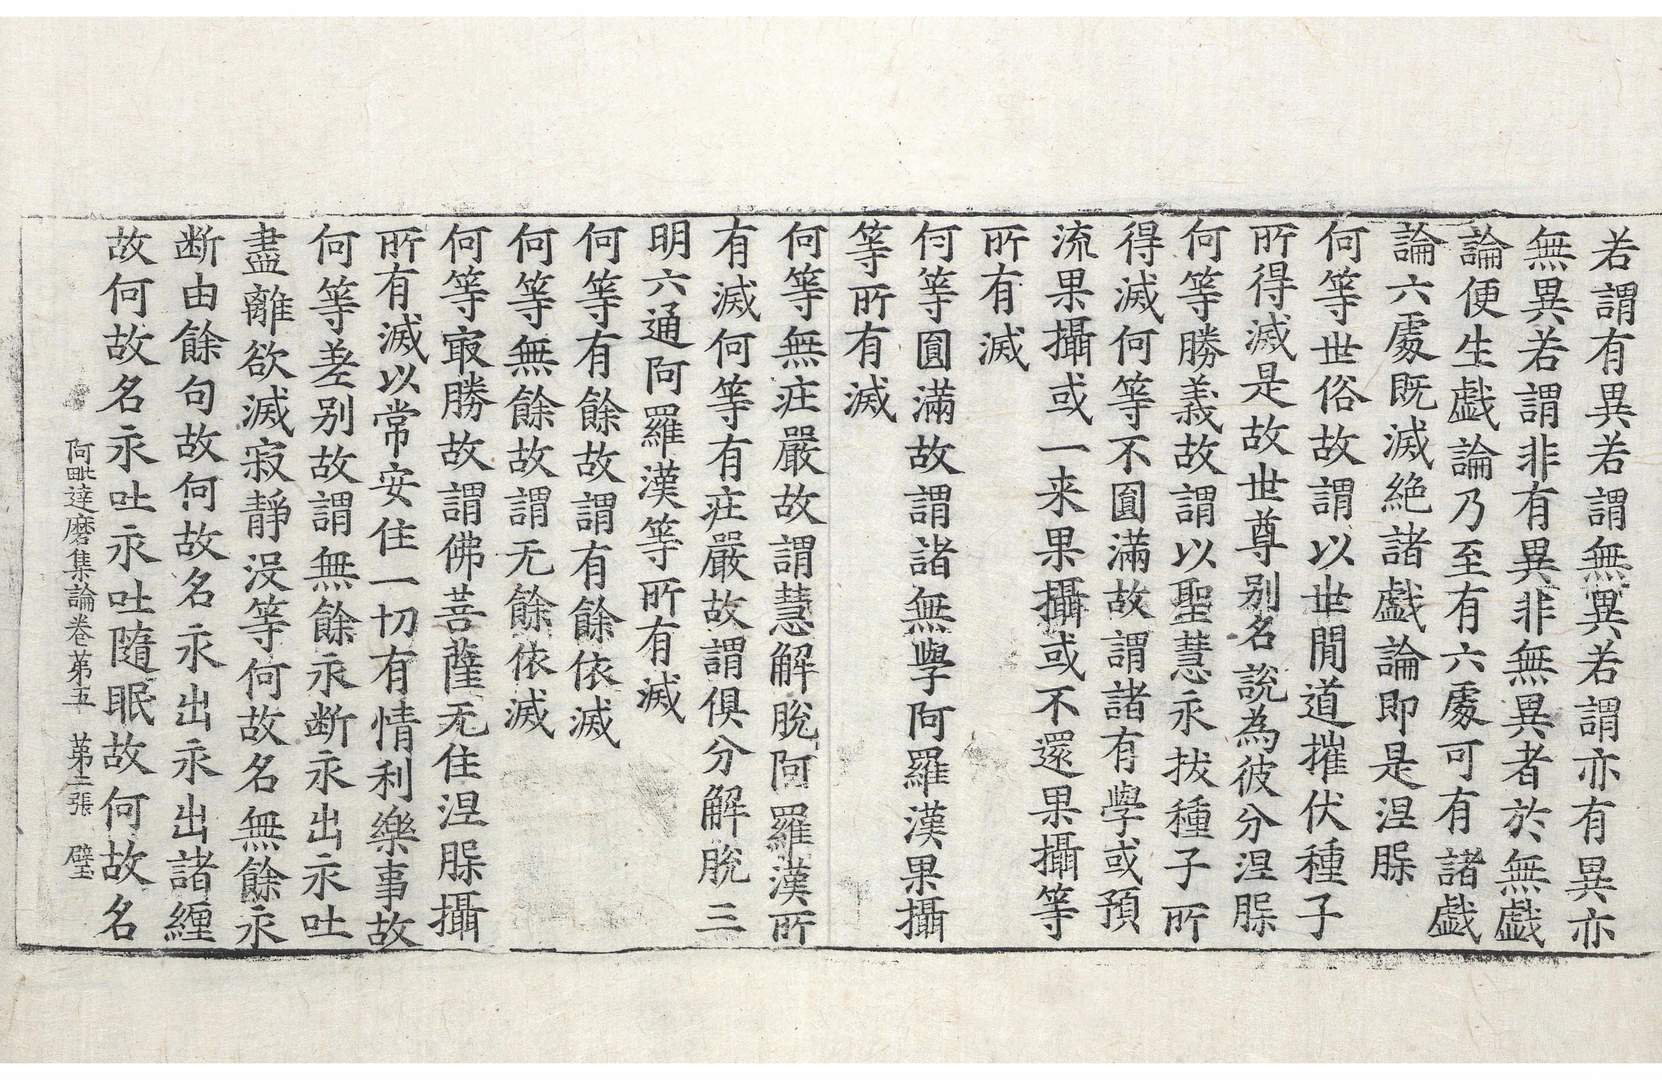 若謂有異若謂無異若謂亦有異亦
無異若謂非有異非無異者於無戯
論便生戯論乃至有六處可有諸戯
論六處既滅絶諸戯論即是涅槃
何等世俗故謂以世閒道摧伏種子
所得滅是故世尊别名說為彼分涅槃
何等勝義故謂以聖慧永拔種子所
得滅何等不圎滿故謂諸有學或預
流果攝或一来果攝或不還果攝等
所有滅
何等圎滿故謂諸無學阿羅漢果攝
等所有滅
何等無庄嚴故謂慧解脫阿羅漢所
有滅何等有庄嚴故謂俱分解脫三
明六通阿羅漢等所有滅
何等有餘故謂有餘依滅
何等無餘故謂无餘依滅
何等㝡勝故謂佛菩薩无住涅槃攝
所有滅以常安住一切有情利樂事故
何等差别故謂無餘永断永出永吐
盡離欲滅寂靜没等何故名無餘永
断由餘句故何故名永出永出諸纏
故何故名永吐永吐隨眠故何故名
阿毗達磨集論卷第五　第二張　璧